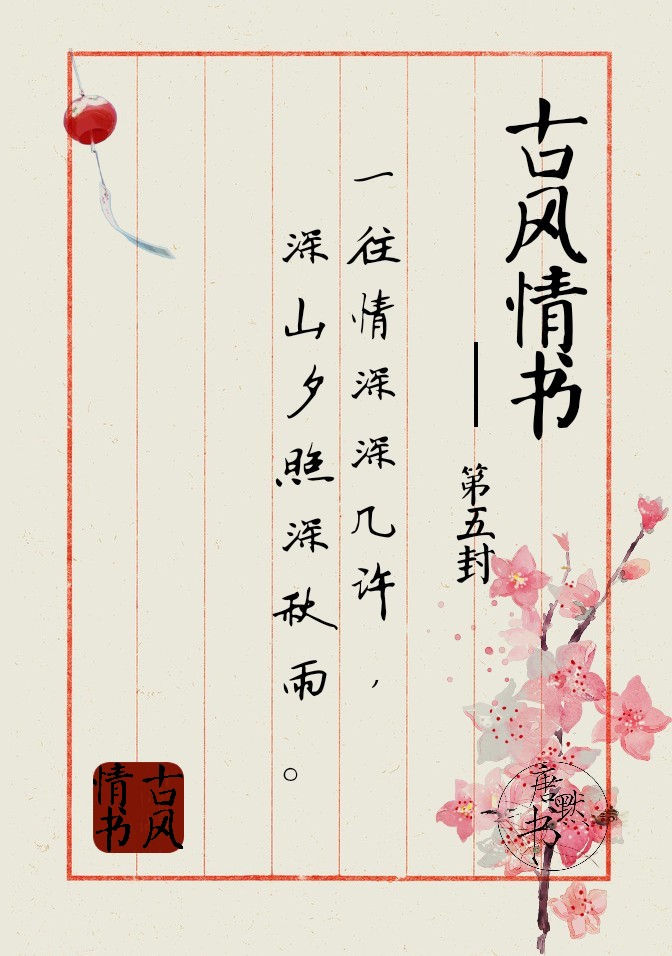 古风情书
——第五封
一往情深深几许，
深山夕照深秋雨。
古风
情书
唐默书